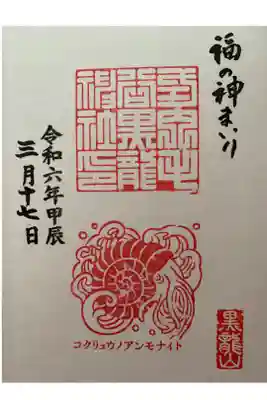 福の神まいり
黒龍
社印
令和六年甲辰
三月十七日
コクリュウノアンモナイト
黒龍山